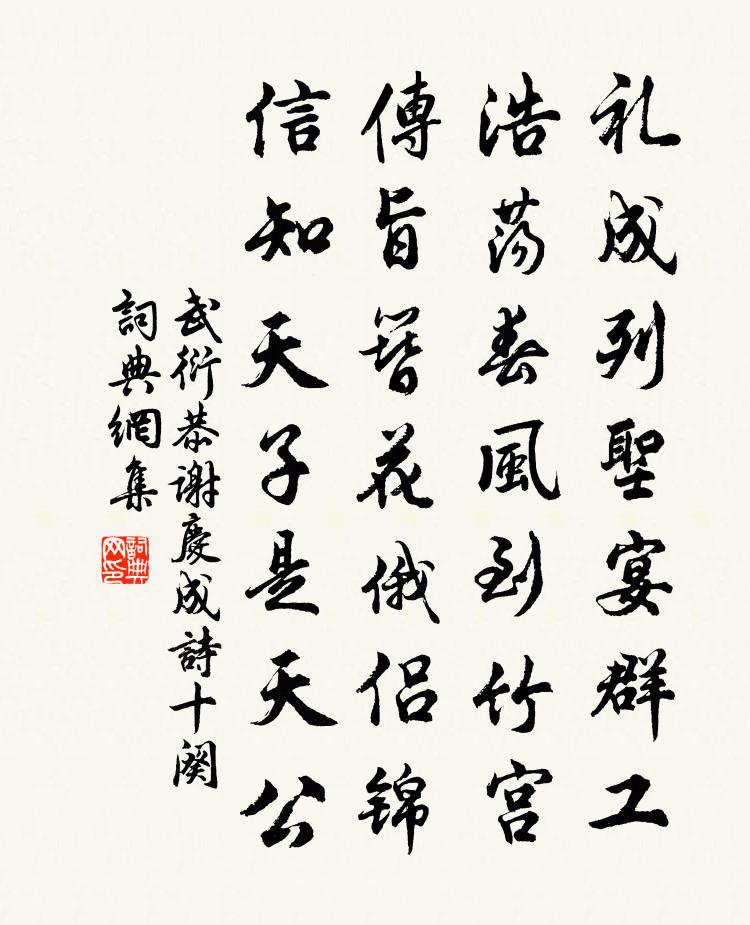 礼成列聖宴群工
浩荡春風到竹宮
傳旨簪花俄侣锦
信知天子是天公
武衍恭谢慶成詩十闋
詞典網集
詞典网印